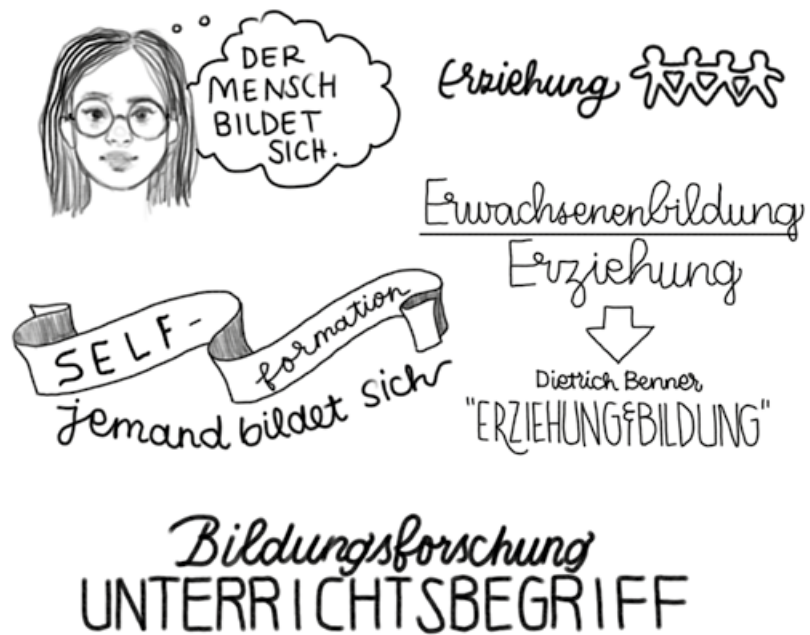 DER
MENSCH
BILDET
SICH.
Erziehung
Erwachsenenbildung
Erziehung
SELF-
formation
jemand bildet sich
Dietrich Benner
"ERZIEHUNG&BILDUNG"
Bildungsforschung
UNTERRICHTSBEGRIFF